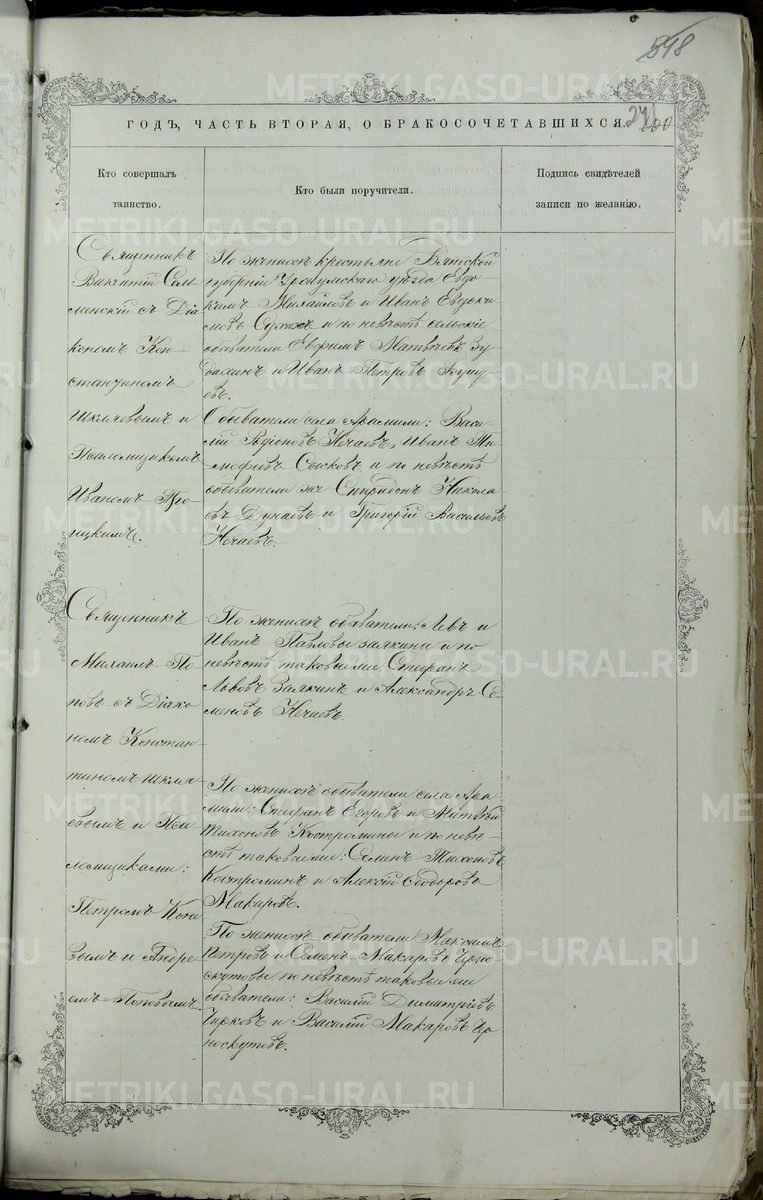 548
241
100
ГОДЪ, ЧАСТЬ ВТОРАЯ, О БРАКОСОЧЕТАВШИХСЯ.
Кто совершалъ
таинство.
Кто были поручители.
Подпись свидѣтелей
записи по желанію.
Священникъ
Викентій
менскій съ Діа
кономъ Кон
стантиномъ
Шкляевымъ и
Псаломщикомъ
Иваномъ Тро
ицкимъ.
По женихѣ крестьяне Вятской
губерніи Уржумскаго уѣзда Евдо
кимъ Михайловъ и Иванъ Евдоки
мовъ и по невѣстѣ сельскіе
обыватели Евфимъ Матвѣевъ Зу
и Иванъ Петровъ
Обыватели села Арамили: Васи
лій Родіоновъ Нечаевъ, Иванъ Ти
мофеевъ Сысковъ и по невѣстѣ
обыватели же Спиридонъ Никола
евъ Дунаевъ и Григорій Васильевъ
Нечаевъ.
Священникъ
Михаилъ По
повъ съ Діако
номъ Констан
тиномъ Шкля
евымъ и Пса
ломщиками:
Петромъ Коне
вымъ и Андре
емъ Поповымъ.
По женихѣ обыватели: Левъ и
Иванъ Павловы Заякины и по
невѣстѣ таковые же Стефанъ
Львовъ Заякинъ и Александръ Се
меновъ Нечаевъ.
По женихѣ обыватели села Ара
мили: Стефанъ Егоровъ и Матвѣй
Тихоновъ Костромины и по невѣ
стѣ таковые же: Семенъ Тихоновъ
Костроминъ и Алексій Ѳеодоровъ
Макаровъ.
По женихѣ обыватели Максимъ
Петровъ и Семенъ Макаровъ Чрно
скутовы по невѣстѣ таковые же
обыватели: Василій Димитріевъ
Чирковъ и Василій Макаровъ Чр
носкутовъ.
METRIKI.GASO-URAL.RU